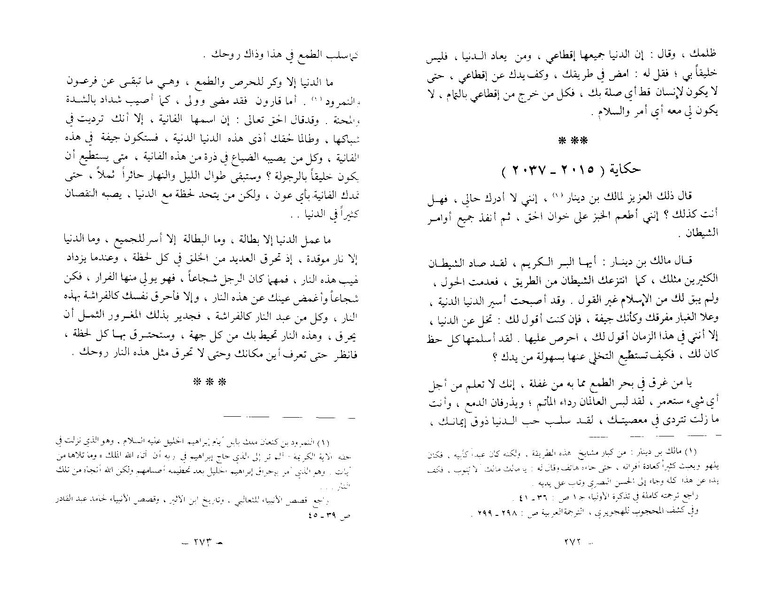 ظلمك ، وقال : إن الدنيا جميعها إقطاعي ، ومن يعاد الدنيا ، فليس
خليقاً بي ؛ فقل له : امض في طريقك ، وكف يدك عن إقطاعي ، حتى
لا يكون لإنسان قط أي صلة بك ، فكل من خرج من إقطاعي بالتمام ، لا
يكون لي معه أي أمر والسلام .
***
حكاية ( ٢٠١٥ ـ ٢٠٣٧ )
قال ذلك العزيز لمالك بن دينار (١) ، إنني لا أدرك حالي ، فهل
أنت كذلك ؟ إنني أطعم الخبز على خوان الحق ، ثم أنفذ جميع أوامر
الشيطان .
قال مالك بن دينار : أيها البر الكريم ، لقد صاد الشيطان
الكثيرين مثلك ، كما انتزعك الشيطان من الطريق ، فعدمت الحول ،
ولم يبق لك من الإسلام غير القول . وقد أصبحت أسير الدنيا الدنية ،
وعلا الغبار مفرقك وكأنك جيفة ، فإن كنت أقول لك : تخل عن الدنيا ،
إلا أنني في هذا الزمان أقول لك ، احرص عليها . لقد أسلمتها كل حظ
كان لك ، فكيف تستطيع التخلي عنها بسهولة من يدك ؟
يا من غرق في بحر الطمع مما به من غفلة ، إنك لا تعلم من أجل
أي شيء ستعمر ، لقد لبس العالمان رداء المأتم ؛ ويذرفان الدمع ، وأنت
ما زلت تتردى في معصيتك ، لقد سلب حب الدنيا ذوق إيمانك ،
(١) مالك بن دينار : من كبار مشايخ هذه الطريقة ، ولكنه كان عبد أبيه ، فكان
يلهو ويعبث كثيراً كعادة أقرانه ، حتى جاءه هاتف وقال له : يا مالك مالك ألا تتوب ، فكف
يده عن هذا كله وجاء إلى الحسن البصري وتاب على يديه .
راجع ترجمته كاملة في تذكرة الأولياء جـ ١ ص : ٣٦ ـ ٤١ .
وفي كشف المحجوب للهجويري ، الترجمة العربية ص : ٢٩٨ ـ ٢٩٩ .
ـ ٢٧٢ ـ
كما سلب الطمع في هذا وذاك روحك .
ما الدنيا إلا وكر للحرص والطمع ، وهي ما تبقى عن فرعون
والنمرود (١) . أما قارون فقد مضى وولى ، كما أصيب شداد بالشدة
والمحنة . وقد قال الحق تعالى : إن اسمها الفانية ، إلا أنك ترديت في
شباكها ، وطالما لحقك أذى هذه الدنيا الدنية ، فستكون جيفة في هذه
الفانية ، وكل من يصيبه الضياع في ذرة من هذه الفانية ، متى يستطيع أن
يكون خليقاً بالرجولة ؟ وستبقى طوال الليل والنهار حائراً ثملاً ، حتى
تمدك الفانية بأي عون ، ولكن من يتحد لحظة مع الدنيا ، يصبه النقصان
كثيراً في الدنيا . .
ما عمل الدنيا إلا بطالة ، وما البطالة إلا أسر للجميع ، وما الدنيا
إلا نار موقدة ، إذ تحرق العديد من الخلق في كل لحظة ، وعندما يزداد
لهيب هذه النار ، فمهما كان الرجل شجاعاً ، فهو يولي منها الفرار ، فكن
شجاعاً وأغمض عينك عن هذه النار ، وإلا فأحرق نفسك كالفراشة بهذه
النار ، وكل من عبد النار كالفراشة ، فجدير بذلك المغرور الثمل أن
يحرق ، وهذه النار تحيط بك من كل جهة ، وستحترق بها كل لحظة ،
فانظر حتى تعرف أين مكانك وحتى لا تحرق مثل هذه النار روحك .
***
(١) النمرود بن كنعان ملك بابل أيام إبراهيم الخليل عليه السلام ، وهو الذي نزلت في
حقه الآية الكريمة : ألم تر إلى الذي حاج إبراهيم في ربه أن أتاه الله الملك ، وما تلاها من
آيات . وهو الذي أمر بإحراق إبراهيم الخليل بعد تحطيمه أصنامهم ولكن الله أنجاه من تلك
النار . .
راجع قصص الأنبياء للثعالبي ، وتاريخ ابن الأثير ، وقصص الأنبياء لحامد عبد القادر
ص ٣٩ ـ ٤٥
ـ ٢٧٣ ـ